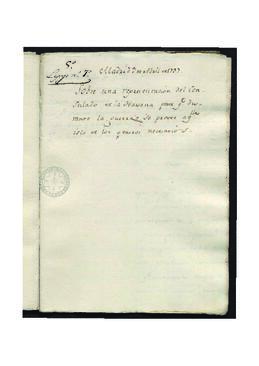 Madrid 7 de Abril de 1797
Sobre una representacion del Con
sulado de la Havana para q.e du
rante la guerra se provea aq.lla
isla de los generos necesarios.